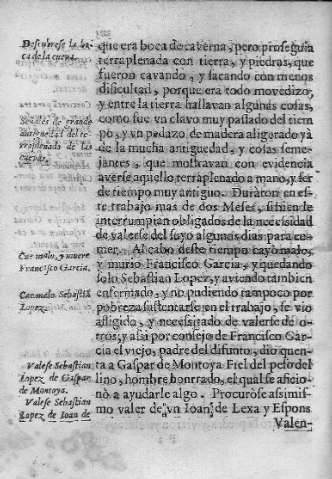 Descubrese la bo-
ca de la cueva.
Señales de grande
antiguedad del te-
rraplenado de la
cueva.
Cae malo, y muere
Francisco Garcia.
Cae malo Sebastiã
Lopez.
Valese Sebastian
Lopez de Gaspar
de Montoya.
Valese Sebastian
Lopez de Ioan de
que era boca de caverna, pero proseguia
terraplenada con tierra, y piedras, que
fueron cavando, y sacando con menos
dificultad, porque era todo movedizo,
y entre la tierra hallavan algunas cosas,
como fue vn clavo muy passado del tiem
po, y vn pedazo de madera aligerado yà
de la mucha antiguedad, y cosas seme-
jantes, que mostravan con evidencia
averse aquello terraplenado a mano, y ser
de tiempo muy antiguo. Duraron en es-
te trabajo mas de dos Meses, si bien le
interrumpian obligados de la necessidad
de valerse del suyo algunos dias para co-
mer. Al cabo deste tiempo cayò malo,
y murio Francisco Garcia, y quedando
solo Sebastian Lopez, y aviendo tambien
enfermado, y no pudiendo tampoco por
pobreza sustentarse en el trabajo, se vio
afligido, y necessitado de valerse de o-
tros, y assi por consejo de Francisco Gar-
cia el viejo, padre del difunto, dio quen-
ta a Gaspar de Montoya Fiel del peso del
lino, hombre honrrado, el qual se aficio-
nò a ayudarle algo. Procuròse assimis-
mo valer de vn Ioan de Lexa y Espons
Valen-